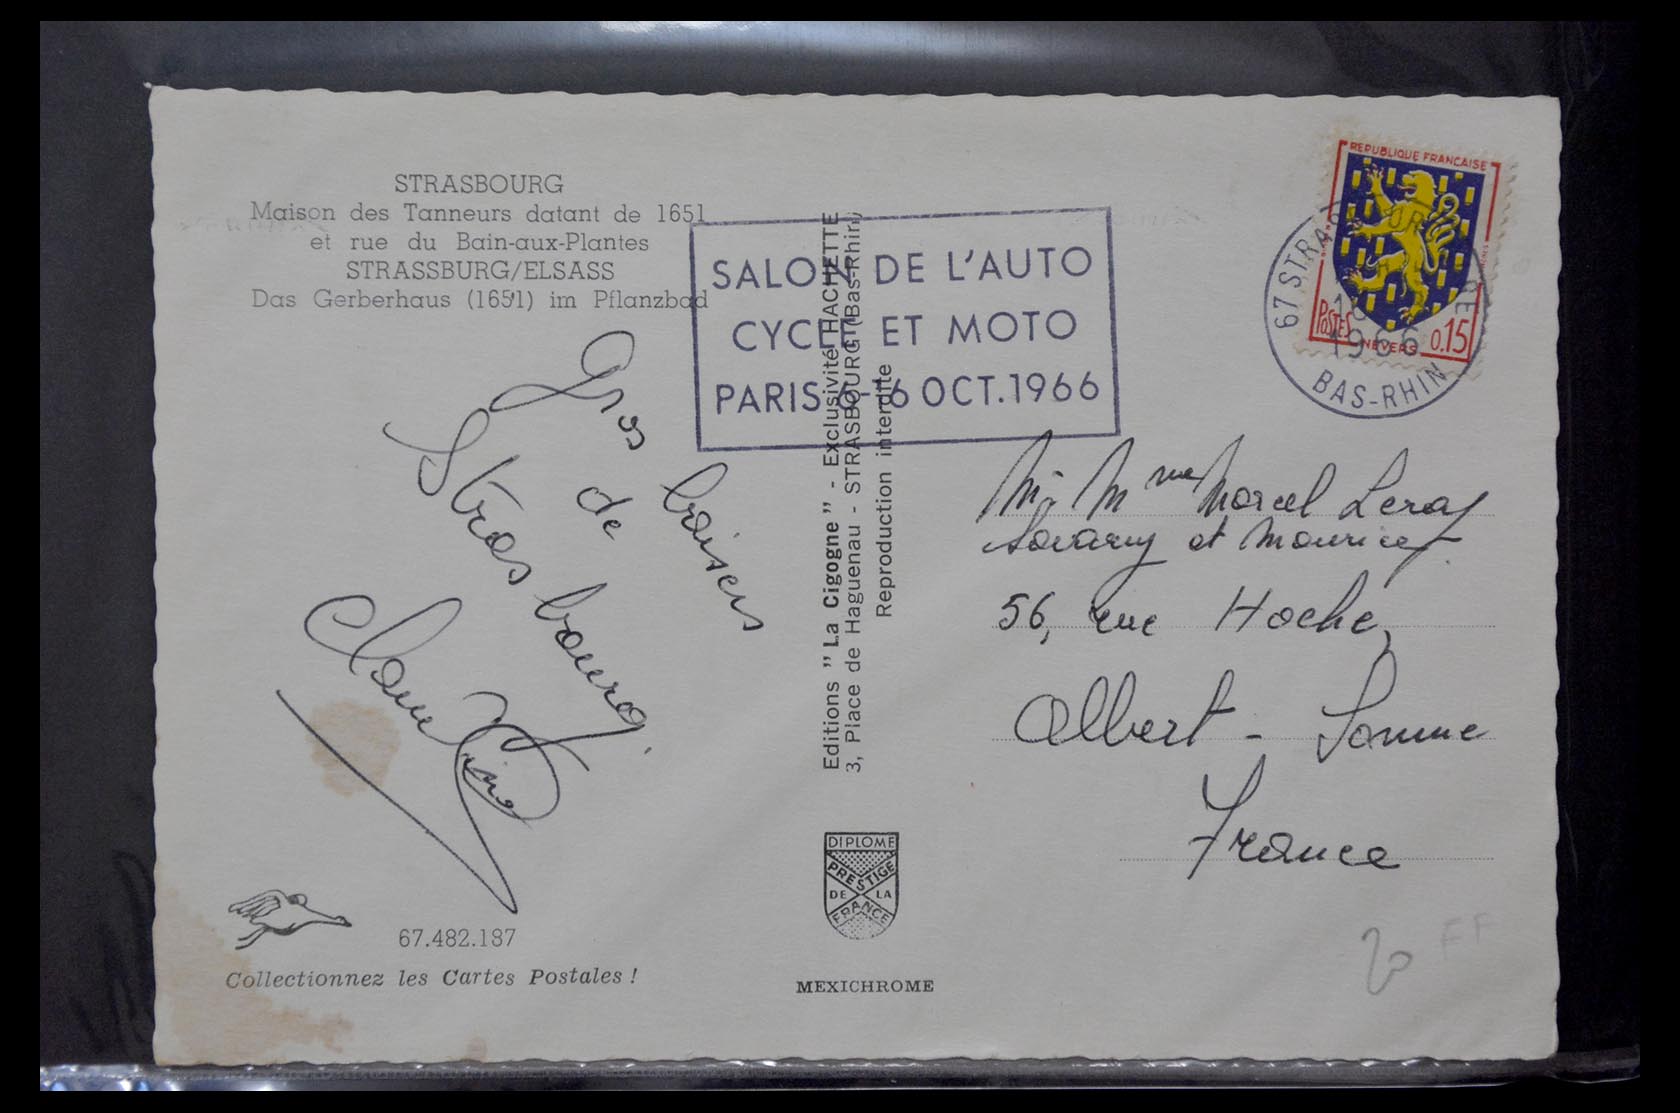 STRASBOURG
Maison des Tanneurs datant de 1651
et rue du Bain-aux-Plantes
STRASSBURG/ELSASS
Das Gerberhaus (1651) im Pflanzbad
SALON DE L'AUTO
CYCLE ET MOTO
PARIS 6-16 OCT. 1966
REPUBLIQUE FRANÇAISE
POSTES 0.15
NEVERS
67 STRASBOURG
1966
BAS-RHIN
Gros baisers
de
Strasbourg.
Editions "La Cigogne" - Exclusivité HACHETTE
3, Place de Haguenau - STRASBOURG (Bas-Rhin)
Reproduction interdite
M. Mme Marcel Leroy
et Maurice
56, rue Hoche,
Albert - Somme
France
DIPLOME
PRESTIGE
DE LA
FRANCE
67.482.187
Collectionnez les Cartes Postales !
MEXICHROME
20 FF